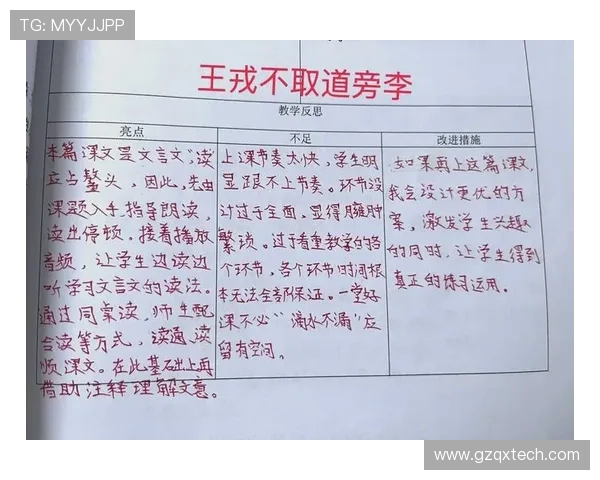 TG: MYYJJPP
王戎不取道旁李
教学反思
亮点
不足
改进措施
本篇课文是文言文,读
应占鳌头,因此,先由
课题入手,指导朗读,
读出停顿。接着播放
音频,让学生边读边
听学习文言文的读法。
通过同桌读,师生配
合读等方式,读通、读
顺课文。在此基础上再
借助注释理解文意。
上课节奏太快,学生明
显跟不上节奏。环节设
计过于全面,显得臃肿
繁琐。过于看重教学的各
个环节,各个环节时间根
本无法全部保证。一堂好
课不必“滴水不漏”应
留有空间。
如果再上这篇课文,
我会设计更优的方
案,激发学生兴趣
的同时,让学生得到
真正的练习运用。
www.gzqxtech.com